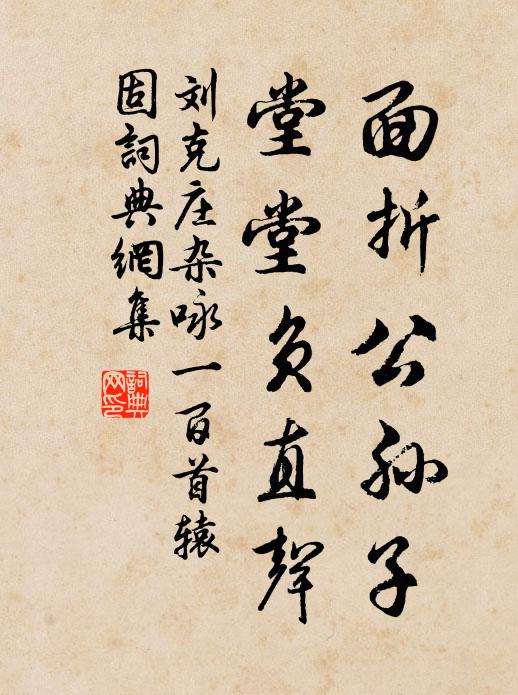 面折公孙子
堂堂负直聲
刘克庄杂咏一百首辕
固詞典網集
詞典
网印